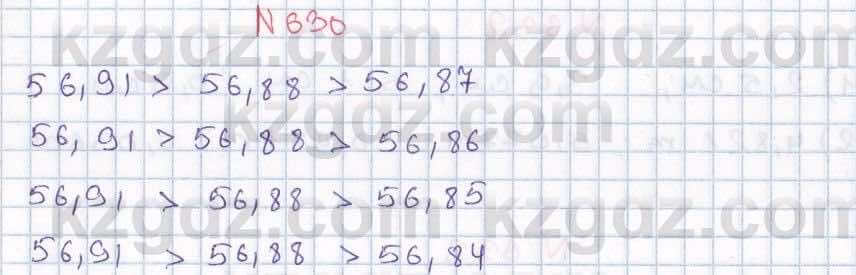 N 630
56,91 > 56,88 > 56,87
56,91 > 56,88 > 56,86
56,91 > 56,88 > 56,85
56,91 > 56,88 > 56,84
kzgdz.com kzgdz.com
kzgdz.com
kzgdz.com kzgdz.com